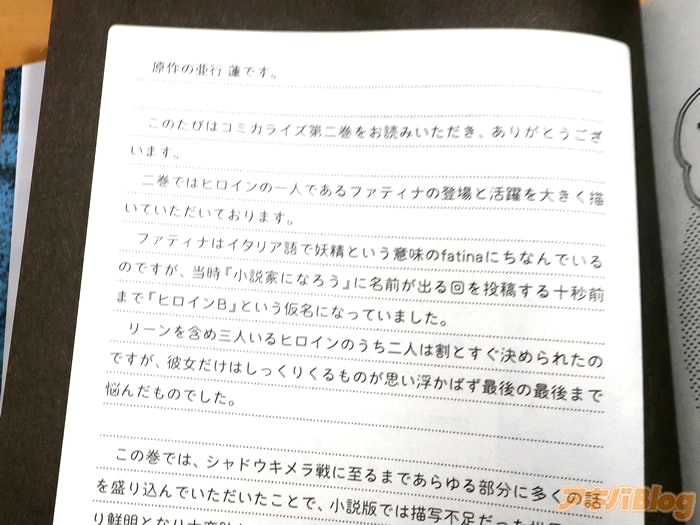 原作の亜行 蓮です。
このたびはコミカライズ第二巻をお読みいただき、ありがとうござ
います。
二巻ではヒロインの一人であるファティナの登場と活躍を大きく描
いていただいております。
ファティナはイタリア語で妖精という意味のfatinaにちなんでいる
のですが、当時『小説家になろう』に名前が出る回を投稿する十秒前
まで『ヒロインB』という仮名になっていました。
リーンを含め三人いるヒロインのうち二人は割とすぐ決められたの
ですが、彼女だけはしっくりくるものが思い浮かばず最後の最後まで
悩んだものでした。
この巻では、シャドウキメラ戦に至るまであらゆる部分に多くの話
を盛り込んでいただいたことで、小説版では描写不足だった
り鮮明となり
アキバBlog